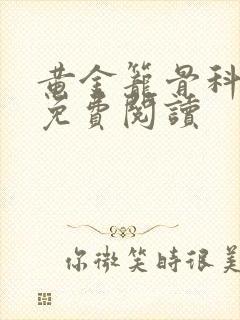 黄金籠骨科
免費閱讀
你微笑時很美